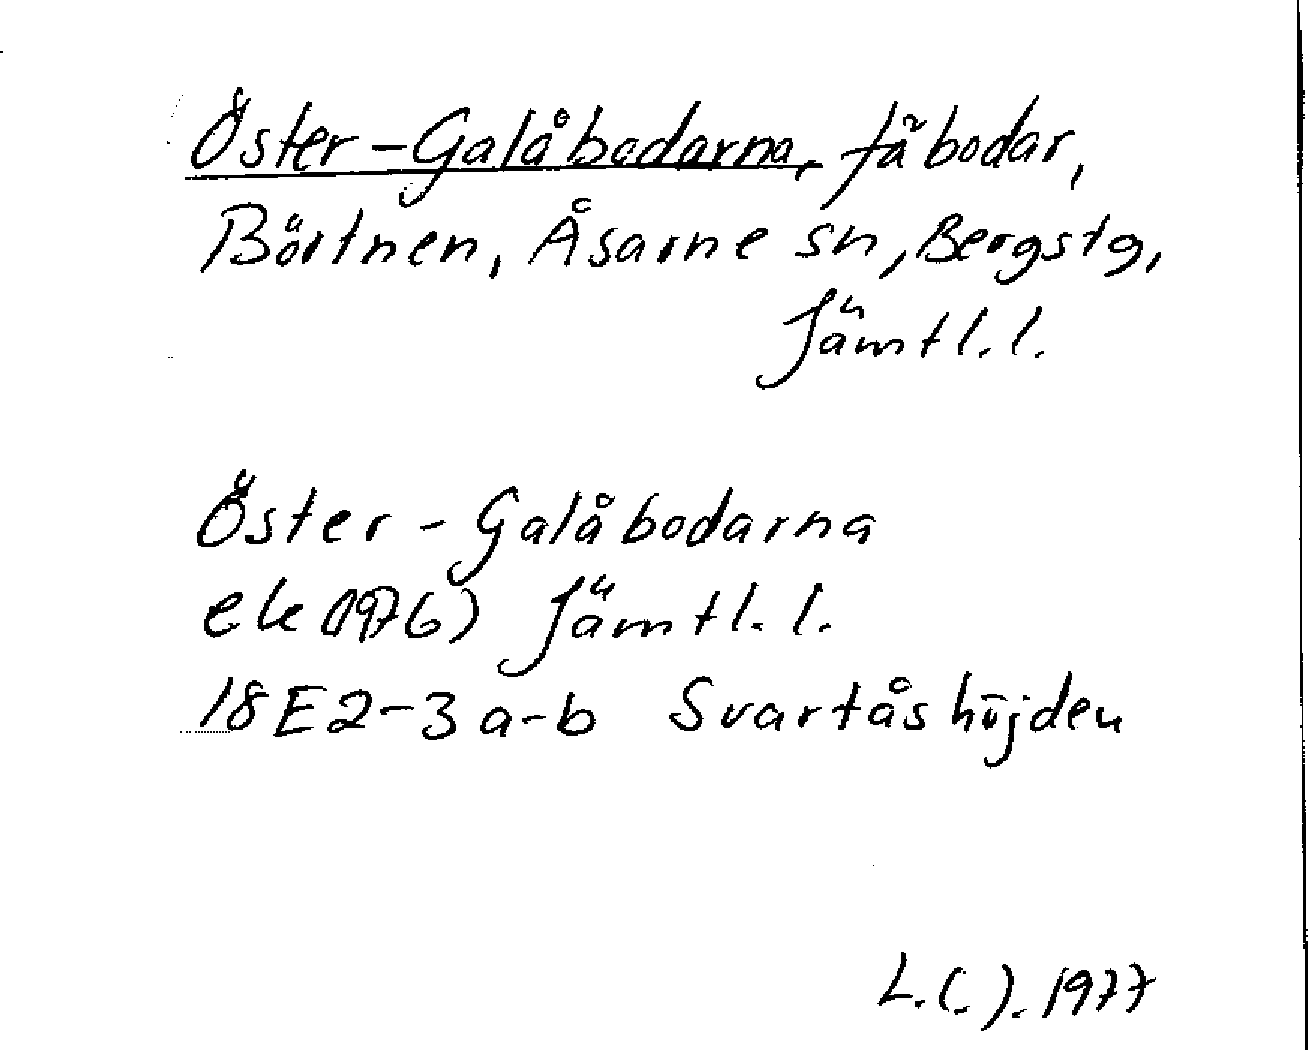 Öster-Galåbodarna, fäbodar,
Börtnen, Åsarne sn, Bergs tg,
Jämtl. l.
Öster-Galåbodarna
ek (1976) Jämtl. l.
18E2-3 a-b Svartåshöjden
L.(.). 1977